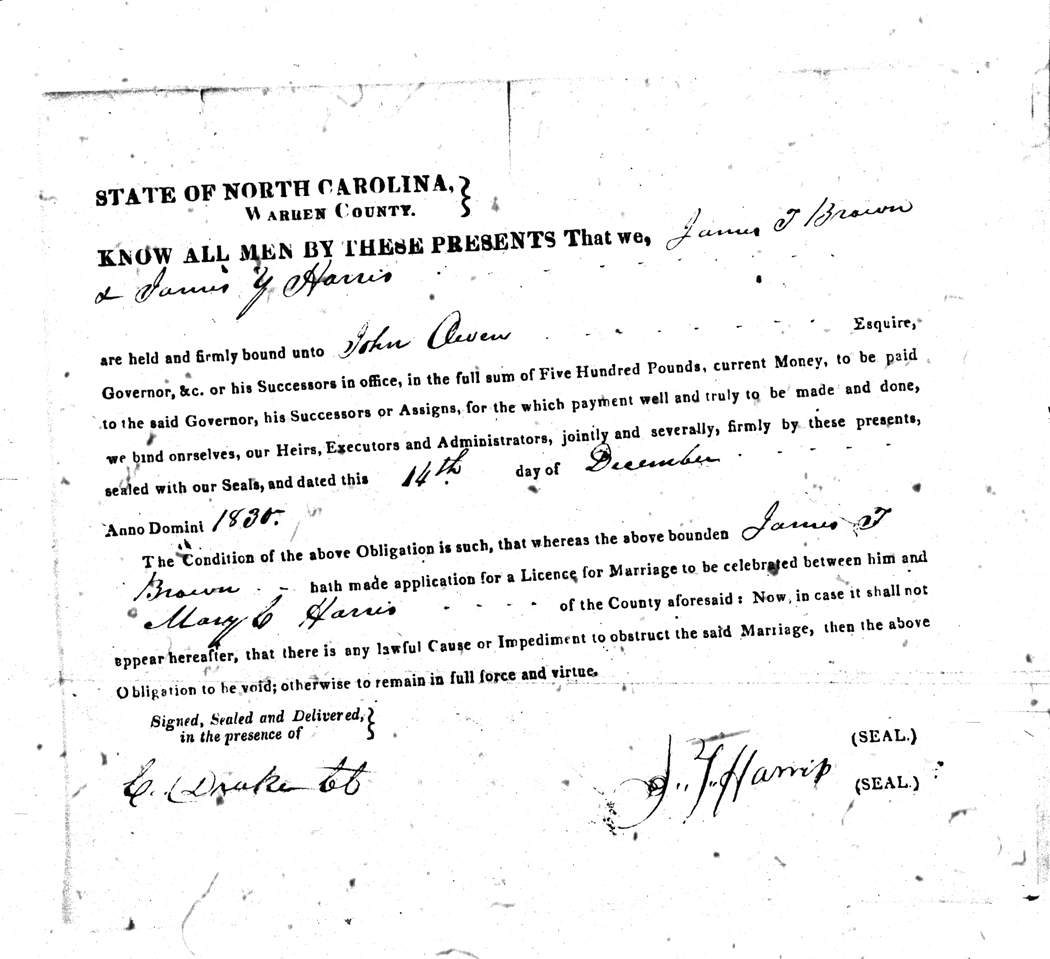 STATE OF NORTH CAROLINA,
WARREN COUNTY.
KNOW ALL MEN BY THESE PRESENTS That we, James T Brown
& James Y Harris
are held and firmly bound unto John Owen Esquire,
Governor, &c. or his Successors in office, in the full sum of Five Hundred Pounds, current Money, to be paid
to the said Governor, his Successors or Assigns, for the which payment well and truly to be made and done,
we bind onrselves, our Heirs, Executors and Administrators, jointly and severally, firmly by these presents,
sealed with our Seals, and dated this 14th day of December
Anno Domini 1830.
The Condition of the above Obligation is such, that whereas the above bounden James T
Brown hath made application for a Licence for Marriage to be celebrated between him and
Mary C Harris of the County aforesaid: Now, in case it shall not
appear hereafter, that there is any lawful Cause or Impediment to obstruct the said Marriage, then the above
Obligation to be void; otherwise to remain in full force and virtue.
Signed, Sealed and Delivered,
in the presence of
(SEAL.)
C. Drake J. Y. Harris (SEAL.)